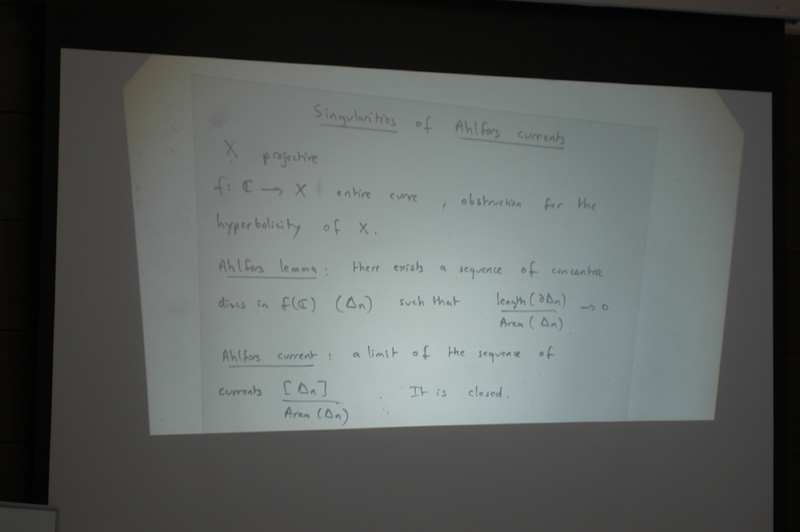 Singularities of Ahlfors currents
X projective
f: ℂ → X entire curve, obstruction for the
hyperbolicity of X.
Ahlfors lemma: there exists a sequence of concentric
discs in f(ℂ) (Δn) such that length(∂Δn)/Area(Δn) → 0
Ahlfors current: a limit of the sequence of
currents [Δn]/Area(Δn). It is closed.